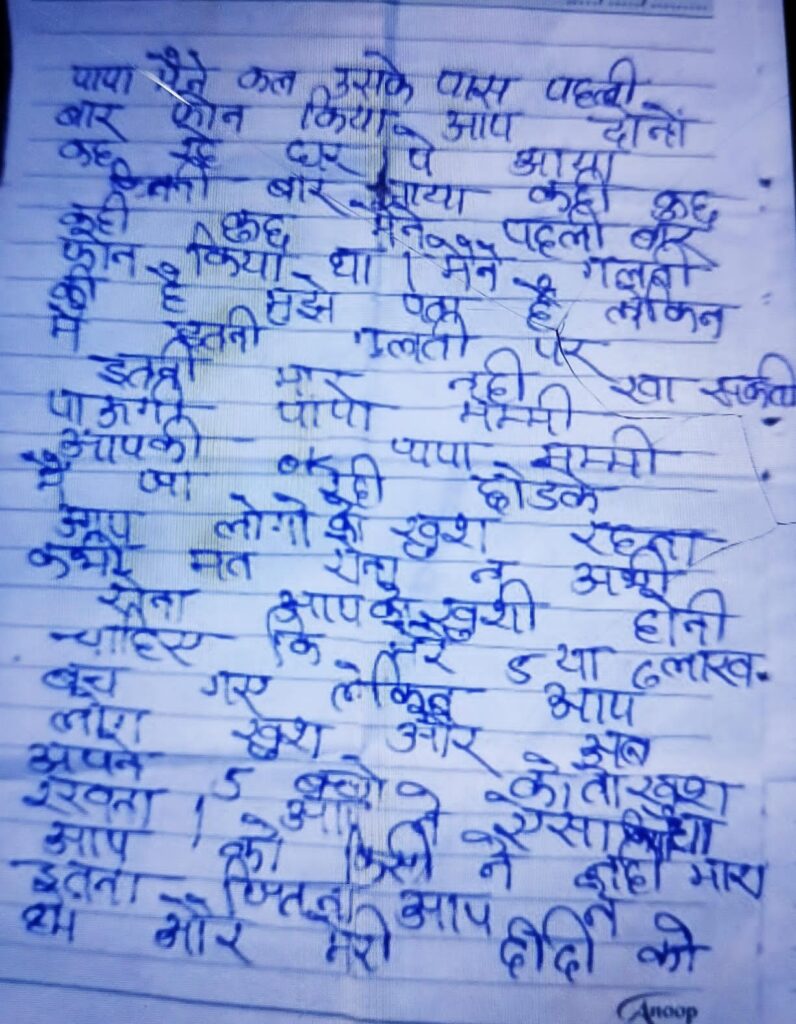 पापा मैने कल उसके पास पहली
बार फोन किया आप दोनो
कह रहे घर पे आया
कितनी बार आया कही कुछ
नही कुछ मैने पहली बार
फोन किया था। मैने गलती
की है मुझे पता है लेकिन
मै इतनी गलती पर
इतनी मार नही खा सकती
पाऊगी पापा मम्मी
आपकी पापा मम्मी
मै जा रही छोडके
आप लोगो को खुश रहना
कभी मत रोना न अभी
रोना आपको खुशी होनी
चाहिए कि मेरे 5 या 6 लाख.
बच गए लेकिन आप
लोग खुश और अब
अपने 5 बच्चो को तो खुश
रखना। आप ने ऐसा किया
आप को किसी ने नही मारा
इतना जितना आप ने
हम और मेरी दीदी को
Anoop